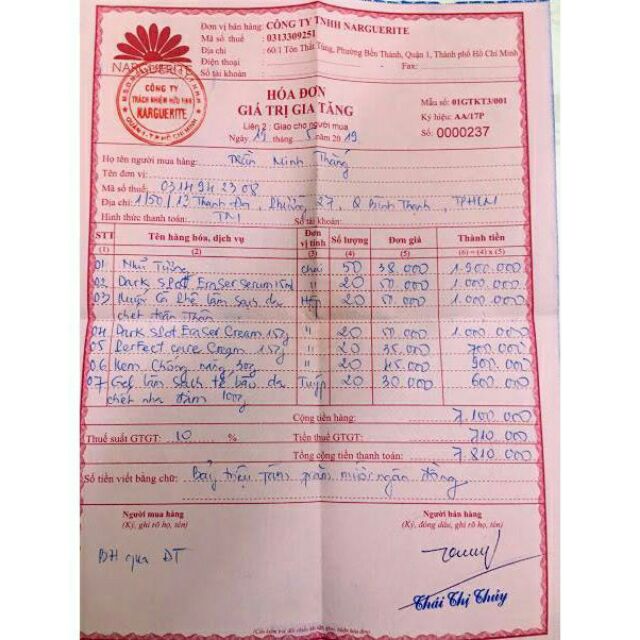 NARGUERITE
Đơn vị bán hàng: CÔNG TY TNHH NARGUERITE
Mã số thuế : 0313309251
Địa chỉ : 60/1 Tôn Thất Tùng, Phường Bến Thành, Quận 1, Thành phố Hồ Chí Minh
Điện thoại : Fax:
Số tài khoản :
CÔNG TY
TRÁCH NHIỆM HỮU HẠN
NARGUERITE
QUẬN 1 - T.P HỒ CHÍ MINH
HÓA ĐƠN
GIÁ TRỊ GIA TĂNG
Liên 2: Giao cho người mua
Ngày 19 tháng 5 năm 2019
Mẫu số: 01GTKT3/001
Ký hiệu: AA/17P
Số: 0000237
Họ tên người mua hàng: Trần Minh Thắng
Tên đơn vị:
Mã số thuế: 0314942308
Địa chỉ: 1/50/12 Thanh Đa, Phường 27, Q Bình Thạnh, TPHCM
Hình thức thanh toán: TM Số tài khoản:
STT Tên hàng hóa, dịch vụ Đơn vị tính Số lượng Đơn giá Thành tiền
(1) (2) (3) (4) (5) (6) = (4) x (5)
01 Nhũ Tương 50 38.000 1.900.000
02 Dark Spot Eraser Serum 15ml " 20 50.000 1.000.000
03 Muối Cà Phê làm sạch da Hộp 20 50.000 1.000.000
chết toàn Thân
04 Dark Spot Eraser Cream 15g " 20 50.000 1.000.000
05 Perfect care Cream 15g " 20 35.000 700.000
06 Kem Chống nắng 30g " 20 45.000 900.000
07 Gel làm Sạch tế bào da Tuýp 20 30.000 600.000
chết nha đam 100g
Cộng tiền hàng: 7.100.000
Thuế suất GTGT: 10 % Tiền thuế GTGT: 710.000
Tổng cộng tiền thanh toán: 7.810.000
Số tiền viết bằng chữ: Bảy triệu tám trăm mười ngàn đồng
Người mua hàng
(Ký, ghi rõ họ, tên)
Người bán hàng
(Ký, đóng dấu, ghi rõ họ, tên)
BH qua ĐT
Thái Thị Thủy
(Cần kiểm tra đối chiếu khi lập, giao, nhận hóa đơn)